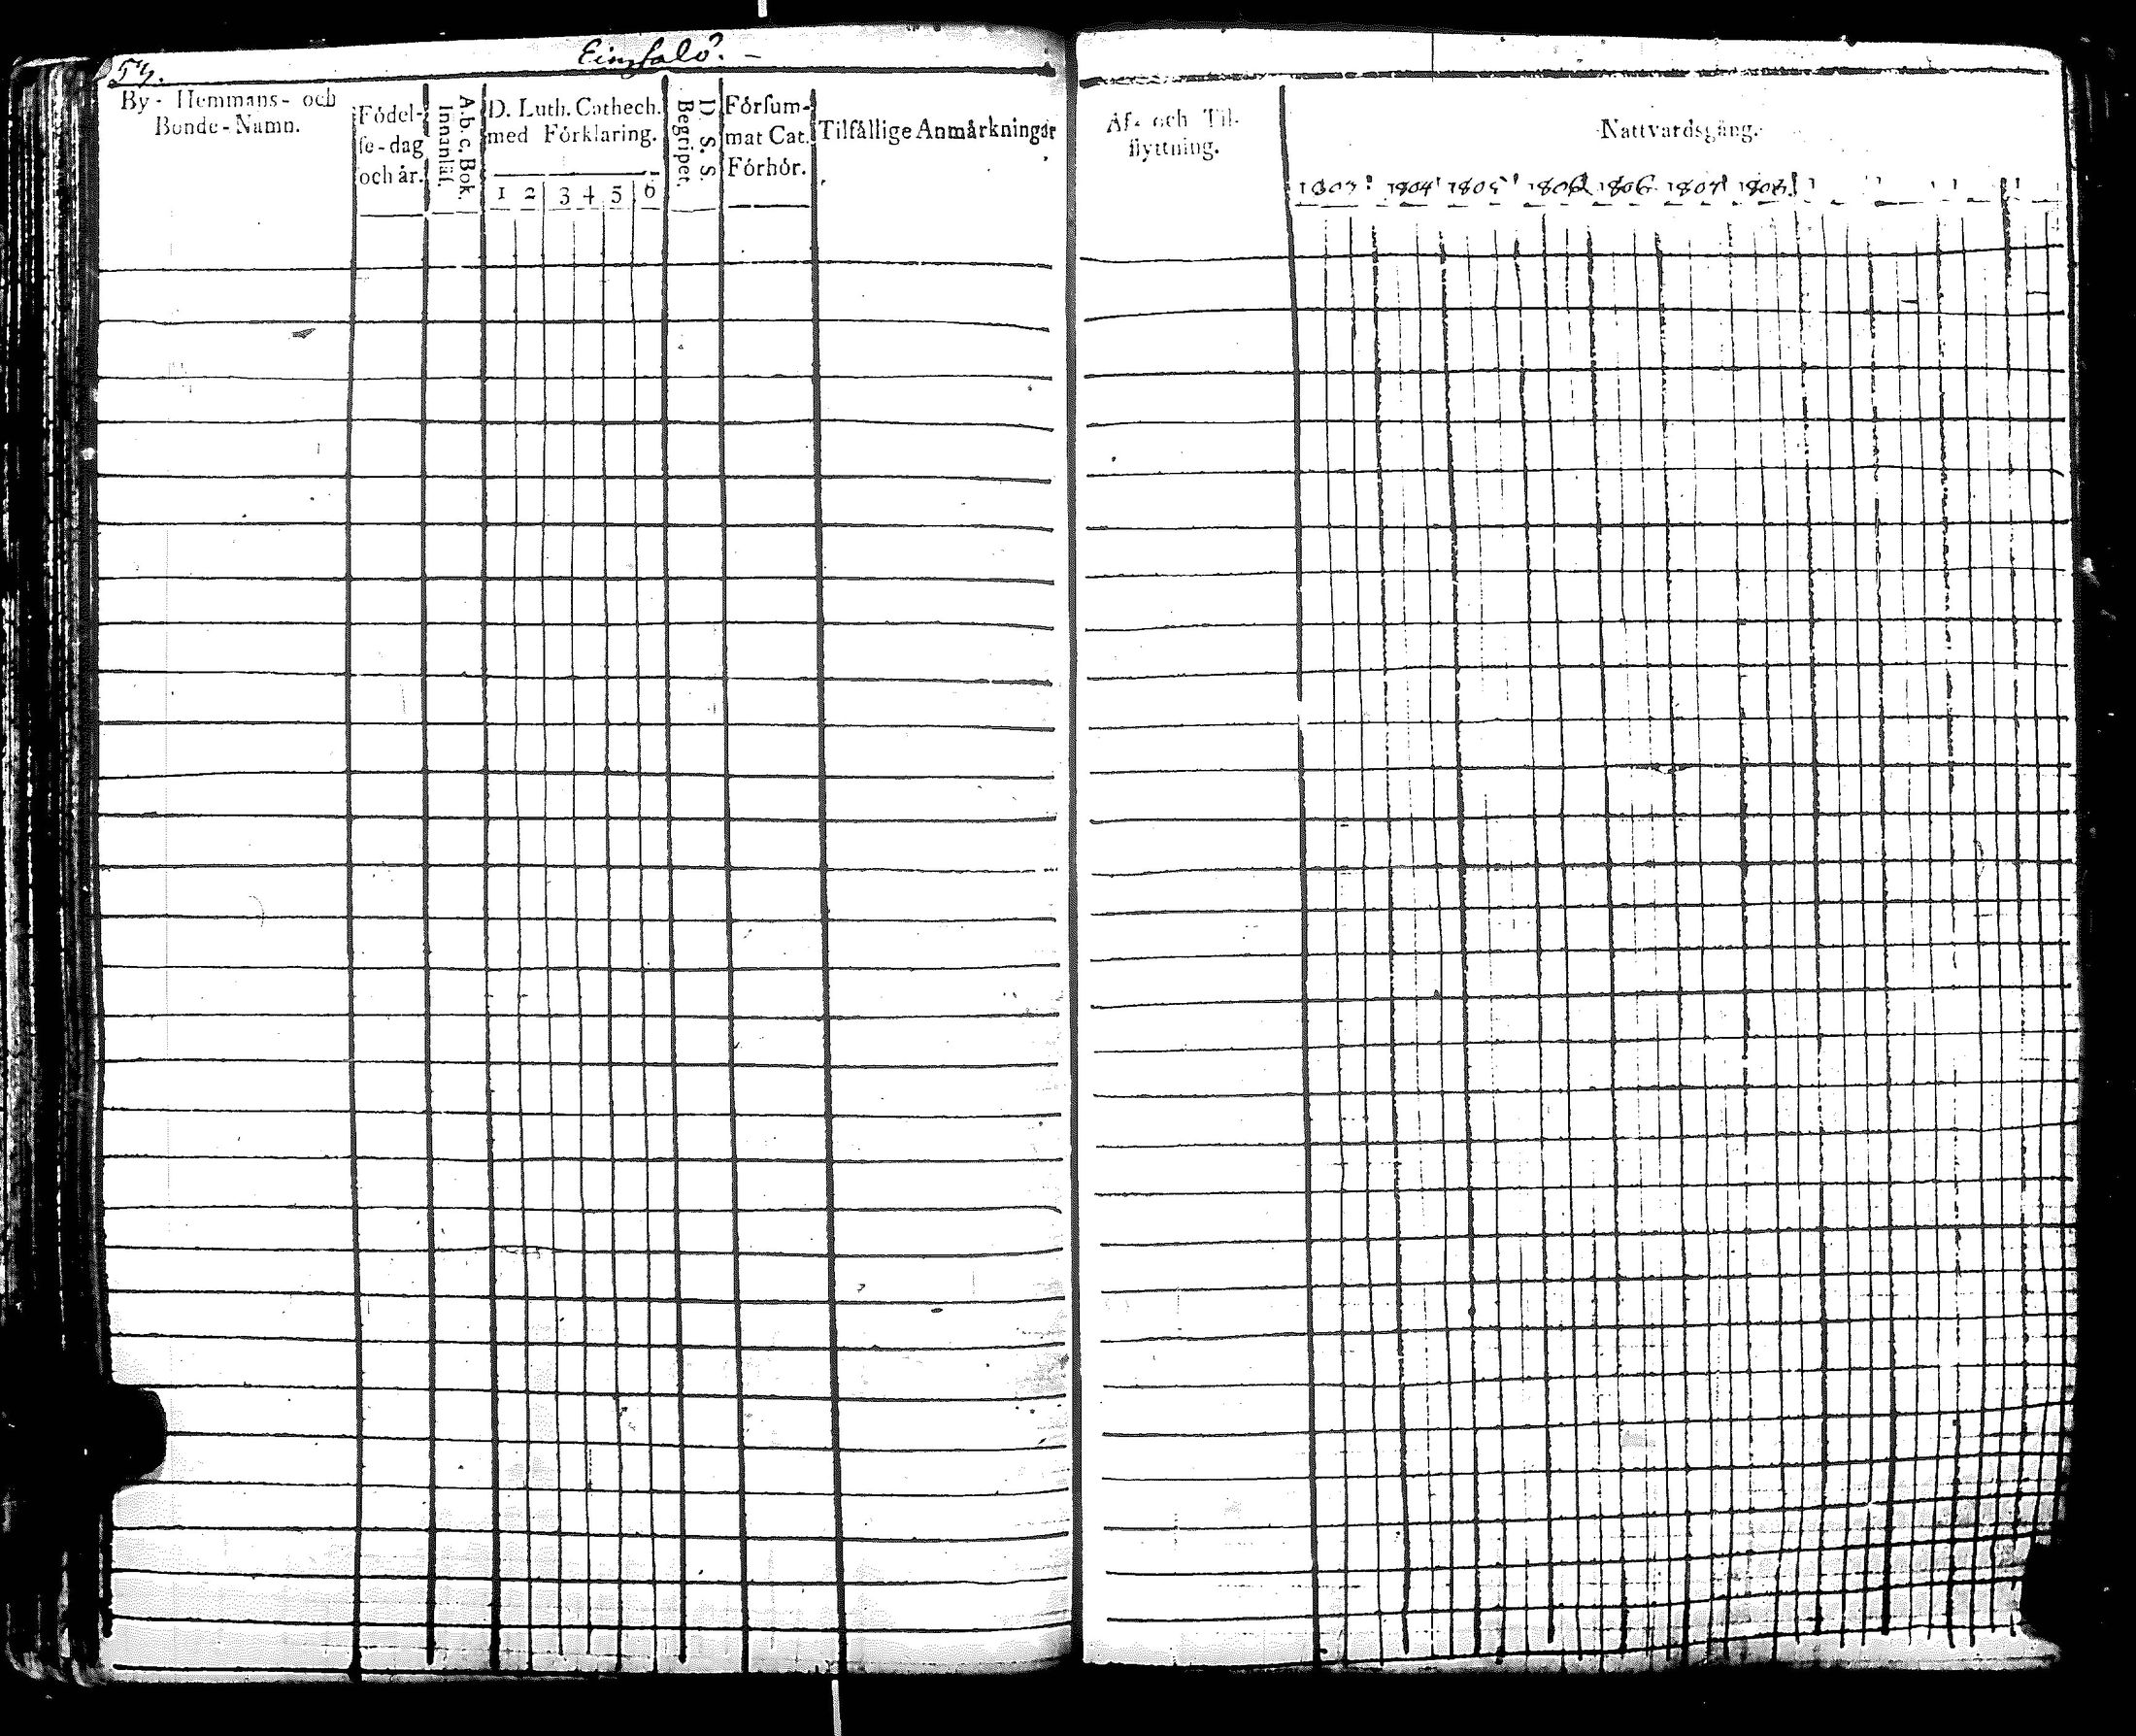 57.
Eingsalo?
By- Hemmans- och
Bonde-Namn.
Fôdel-
se-dag
och år.
A.b.c. Bok.
Innanläs.
D. Luth. Cathech.
med Fôrklaring.
1 2 3 4 5 6
D. S. S.
Begripet.
Fôrsum-
mat Cat.
Fôrhôr.
Tilfällige Anmärkningar
Af- och Til-
flyttning.
Nattvardsgång.
1803 1804 1805 1806 1806 1807 1808